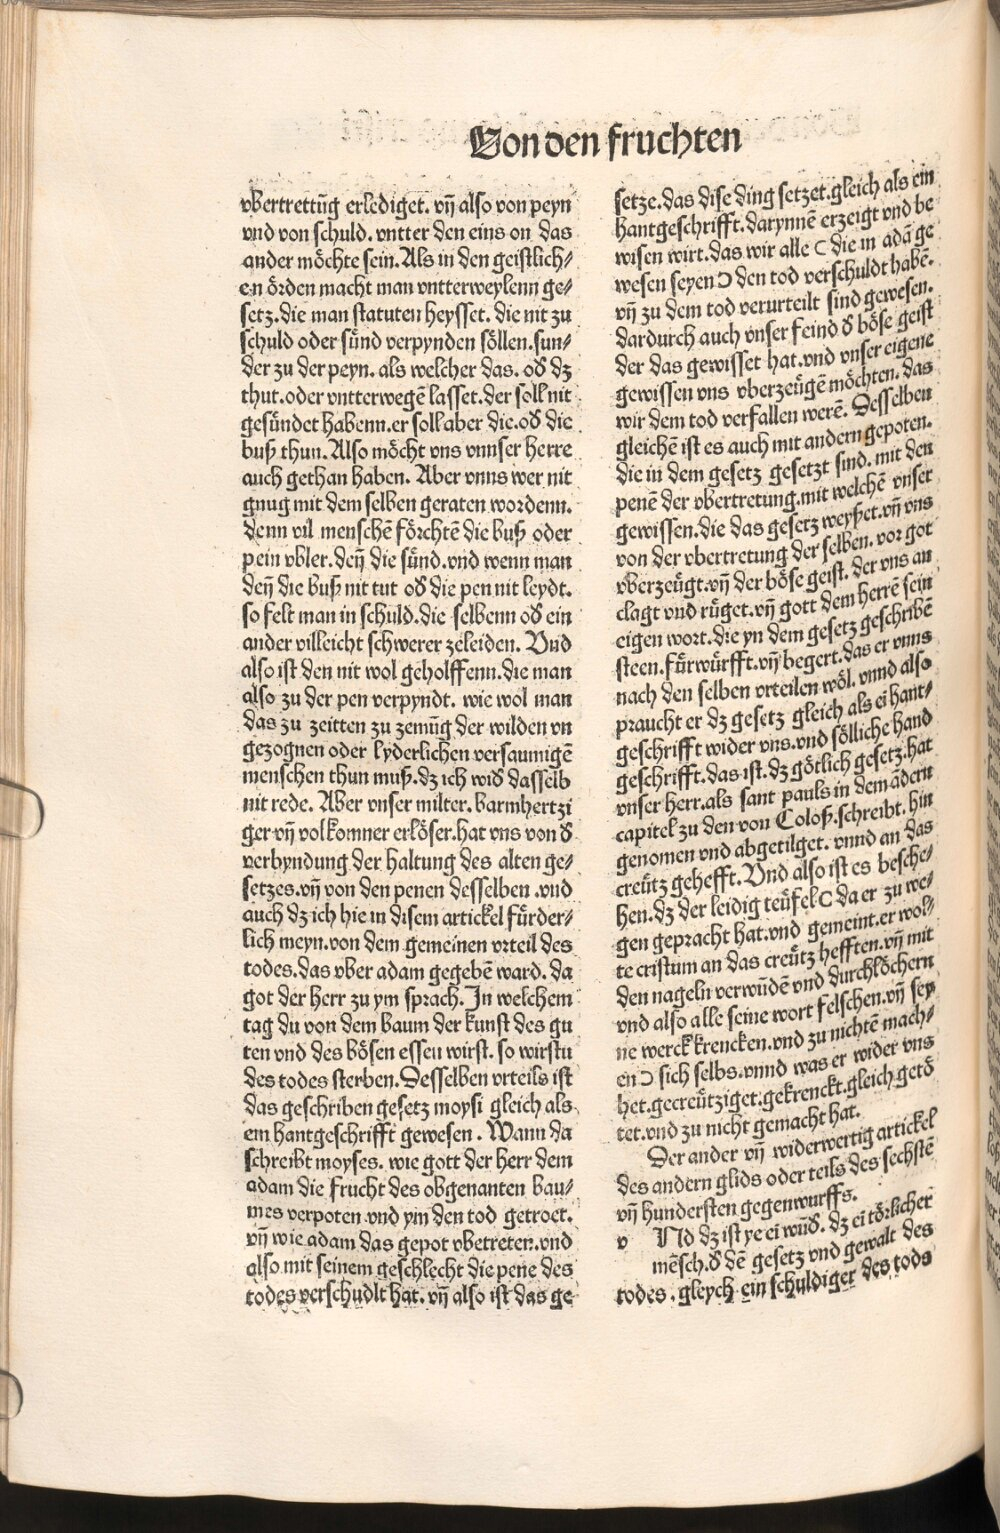 Von den fruchten
vbertrettūg erlediget. vn̄ also von peyn
vnd von schuld. vntter den eins on das
ander möchte sein. Als in den geistlich⸗
en örden macht man vntterweylenn ge⸗
setz. die man statuten heysset. die nit zu
schuld oder sünd verpynden söllen. sun⸗
der zu der peyn. als welcher das. od̕ dz
thut. oder vntterwegē lasset. der soll nit
gesündet habenn. er soll aber die. od̕ die
buß thun. Also möcht vns vnnser herre
auch gethan haben. Aber vnns wer nit
gnug mit dem selben geraten wordenn.
denn vil menschē förchtē die buß oder
pein vbler. den̄ die sünd. vnd wenn man
den̄ die buß nit tut od̕ die pen nit leydt.
so felt man in schuld. die selbenn od̕ ein
ander villeicht schwerer zeleiden. Vnd
also ist den nit wol geholffenn. die man
also zu der pen verpyndt. wie wol man
das zu zeitten zu zemūg der wilden vn
gezognen oder lyderlichen versaumigē
menschen thun muß. dz ich wid̕ dasselb
nit rede. Aber vnser milter. barmhertzi
ger vn̄ volkomner erlöser. hat vns von d̕
verbyndung der haltung des alten ge⸗
setzes. vn̄ von den penen desselben. vnd
auch dz ich hie in disem artickel fürder⸗
lich meyn. von dem gemeinen vrteil des
todes. das vber adam gegebē ward. da
got der herr zu ym sprach. In welchem
tag du von dem baum der kunst des gu
ten vnd des bösen essen wirst. so wirstu
des todes sterben. Desselben vrteils ist
das geschriben gesetz moysi gleich als
em hantgeschrifft gewesen. Wann da
schreibt moyses. wie gott der herr dem
adam die frucht des obgenanten bau⸗
mes verpoten vnd ym den tod getroet.
vn̄ wie adam das gepot vbetreten. vnd
also mit seinem geschlecht die pene des
todes verschudlt hat. vn̄ also ist das ge
setze. das dise ding setzet. gleich als ein
hantgeschrifft. darynnē erzeigt vnd be
wisen wirt. das wir alle ( die in adā ge
wesen seyen ) den tod verschuldt habē.
vn̄ zu dem tod verurteilt sind gewesen.
dardurch auch vnser feind d̕ böse geist
der das gewisset hat. vnd vnser eigene
gewissen vns vberzeügē möchten. das
wir dem tod verfallen werē. Desselben
gleichē ist es auch mit andern gepoten.
die in dem gesetz gesetzt sind. mit den
penē der vbertretung. mit welchē vnser
gewissen. die das gesetz weyßet. vn̄ vns
von der vbertretung der selben. vor got
vberzeügt. vn̄ der böse geist. der vns an
clagt vnd rüget. vn̄ gott dem herrē sein
eigen wort. die yn dem gesetz geschribē
steen. fürwürfft. vn̄ begert. das er vnns
nach den selben vrteilen wöl. vnnd also
praucht er dz gesetz gleich als ei̅ hant⸗
geschrifft wider vns. vnd sölliche hand
geschrifft. das ist. dz götlich gesetz. hat
vnser herr. als sant pauls in dem ādern
capitel zu den von Coloß. schreibt. hin
genomen vnd abgetilget. vnnd an das
creütz gehefft. Vnd also ist es besche⸗
hen. dz der leidig teüfel ( da er zu we⸗
gen gepracht hat. vnd gemeint. er wol⸗
te cristum an das creütz hefften. vn̄ mit
den nageln verwūdē vnd durchlöchern
vnd also alle seine wort felschen. vn̄ sey
ne werck krencken. vnd zu nichtē mach⸗
en ) sich selbs. vnnd was er wider vns
het. gecreütziget. gekrenckt. gleich getö
tet. vnd zu nicht gemacht hat.
Der ander vn̄ widerwertig artickel
des andern glids oder teils des sechstē
vn̄ hundersten gegenwurffs.
v Nd dz ist ye ei̅ wūd̕. dz ei̅ törlicher
mēsch. d̕ dē gesetz vnd gewalt des
todes. gleych ein schuldiger des tods